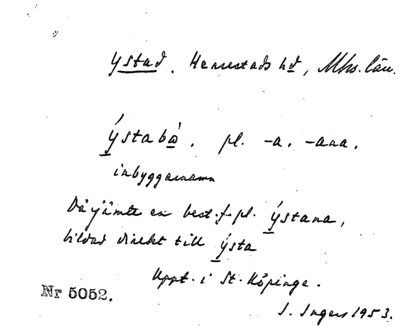 Ystad. Herrestads hd, Mhs. län.
Ýstabò. pl. -a. -ana.
inbyggarnamn
Därjämte en best. f. pl. Ýstana,
bildad direkt till Ýsta
Uppt. i St. Köpinge.
Nr 5052.
I. Ingers 1953.